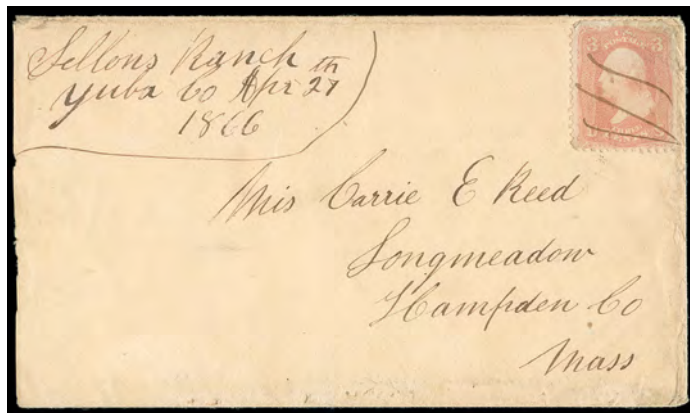 Sellons Ranch
Yuba Co Apr 27th
1866
Mis Carrie E Reed
Longmeadow
Hampden Co
Mass